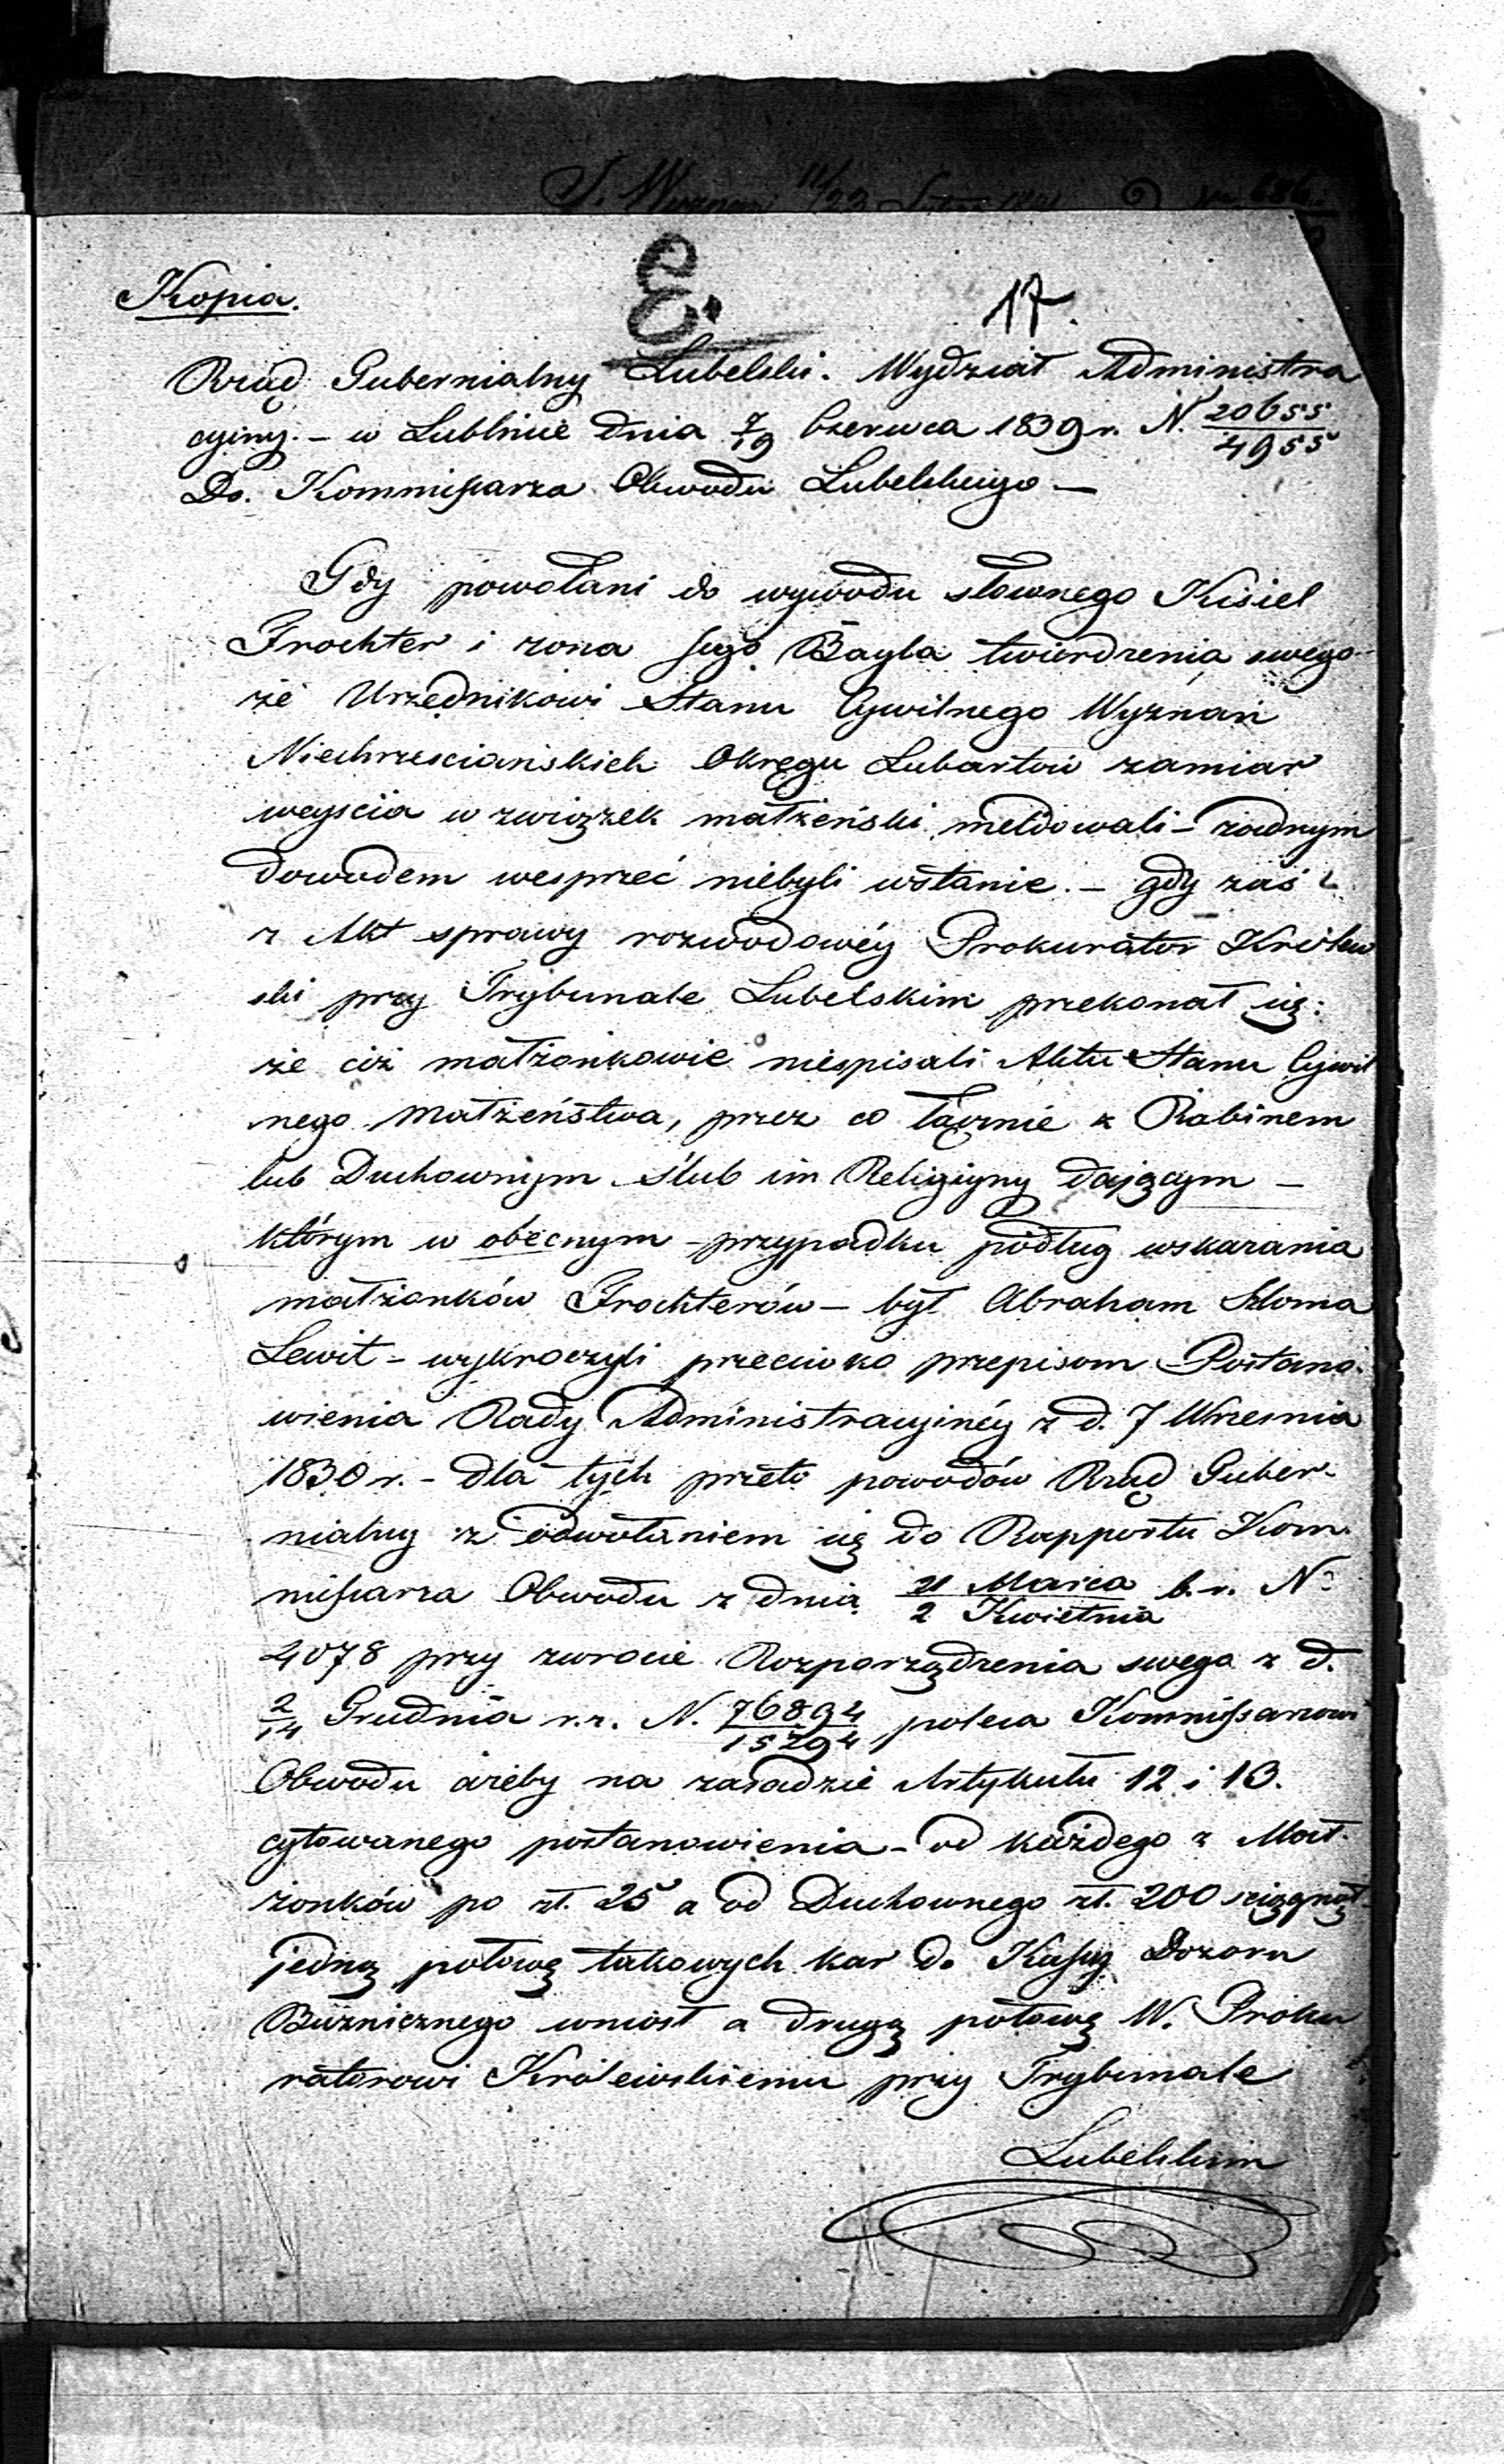 E.
17.
Kopia.
Rząd Gubernialny Lubelski. Wydział Administra
cyiny. – w Lublinie dnia 7/19 Czerwca 1839 r. N. 20655/4955
Do Kommissarza Obwodu Lubelskiego —
Gdy powołani do wywodu słownego Kisiel
Frochter i żona Jego Bayla twierdzenia swego
że Urzędnikowi Stanu Cywilnego Wyznań
Niechrzesciańskich Okręgu Lubartow zamiar
weyscia w związek małżeński meldowali – żadnym
dowodem wesprzeć niebyli wstanie. – gdy zaś
z Akt sprawy rozwodowéy Prokurator Królew
ski przy Trybunale Lubelskim przekonał się:
że ciż małżonkowie niespisali Aktu Stanu Cywil
nego Małżeństwa, przez co łącznie z Rabinem
lub Duchownym ślub im Religijny dającym –
którym w obecnym przypadku podług wskazania
małżonków Frochterów – był Abraham Szloma
Lewit – wykroczyli przeciwko przepisom Postano-
wienia Rady Administracyjnéy z d. 7 Wrzesnia
1830 r. – dla tych przeto powodów Rząd Guber-
nialny z odwołaniem się do Rapportu Kom
missarza Obwodu z dnia 21 Marca/2 Kwietnia b. r. No
4078 przy zwrocie Rozporządzenia swego z d.
2/14 Grudnia r. z. N. 76894/15794 poleca Kommissarzowi
Obwodu ażeby na zasadzie Artykułu 12 i 13.
cytowanego postanowienia – od każdego z Mał-
żonków po zł. 25 a od Duchownego zł. 200 sciągnął
jedną połowę takowych kar do Kassy Dozoru
Bóżnicznego wniósł a drugą połowę W. Proku
ratorowi Królewskiemu przy Trybunale
Lubelskim